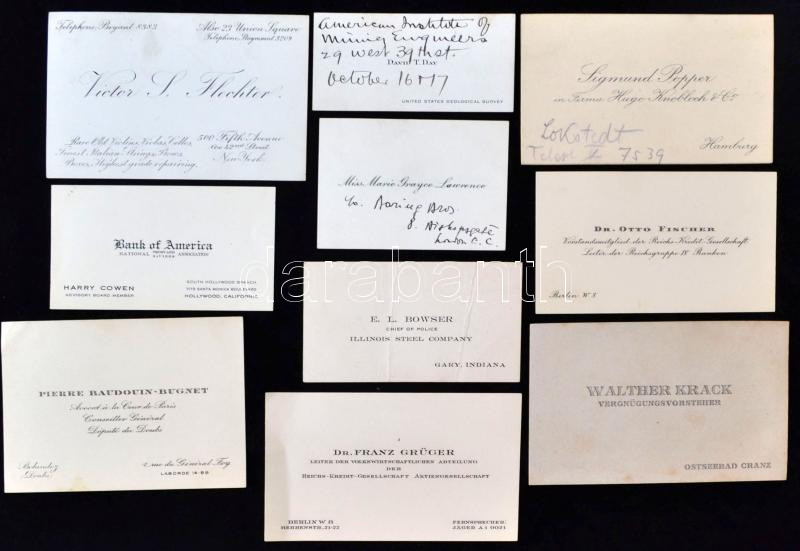 Telephone, Bryant 8383
Also 23 Union Square
Telephone, Stuyvesant 3209
Victor S. Flechter.
Rare Old Violins, Violas, Cellos,
Finest Italian Strings, Bows,
Boxes, Highest grade repairing.
500 Fifth Avenue
Cor 42nd Street
New York.
American Institute of
Mining Engineers
29 West 39th St.
DAVID T. DAY
October 16 1917
UNITED STATES GEOLOGICAL SURVEY
Sigmund Popper
in Firma Hugo Knobloch & Co
Lokstedt
7539
Hamburg
Miss Marie Grayce Lawrence
Co. Baring Bros.
8. Bishopsgate
London E. C.
Bank of America
NATIONAL TRUST AND SAVINGS ASSOCIATION
HARRY COWEN
ADVISORY BOARD MEMBER
SOUTH HOLLYWOOD BRANCH
7175 SANTA MONICA BOULEVARD
HOLLYWOOD, CALIFORNIA
DR. OTTO FISCHER
Vorstandsmitglied der Reichs-Kredit-Gesellschaft
Leiter der Reichsgruppe
Banken
Berlin W 8
darabanth
E. L. BOWSER
CHIEF OF POLICE
ILLINOIS STEEL COMPANY
GARY, INDIANA
PIERRE BAUDOUIN-BUGNET
Avocat à la Cour de Paris
Conseiller Général
Député du Doubs
Doubs
2 rue du Général Foy
LABORDE 14-89
WALTHER KRACK
VERGNÜGUNGSVORSTEHER
OSTSEEBAD CRANZ
DR. FRANZ GRÜGER
LEITER DER VOLKSWIRTSCHAFTLICHEN ABTEILUNG
DER
REICHS-KREDIT-GESELLSCHAFT AKTIENGESELLSCHAFT
BERLIN W 8
BEHRENSTR. 21-22
FERNSPRECHER:
JÄGER A 1 0021